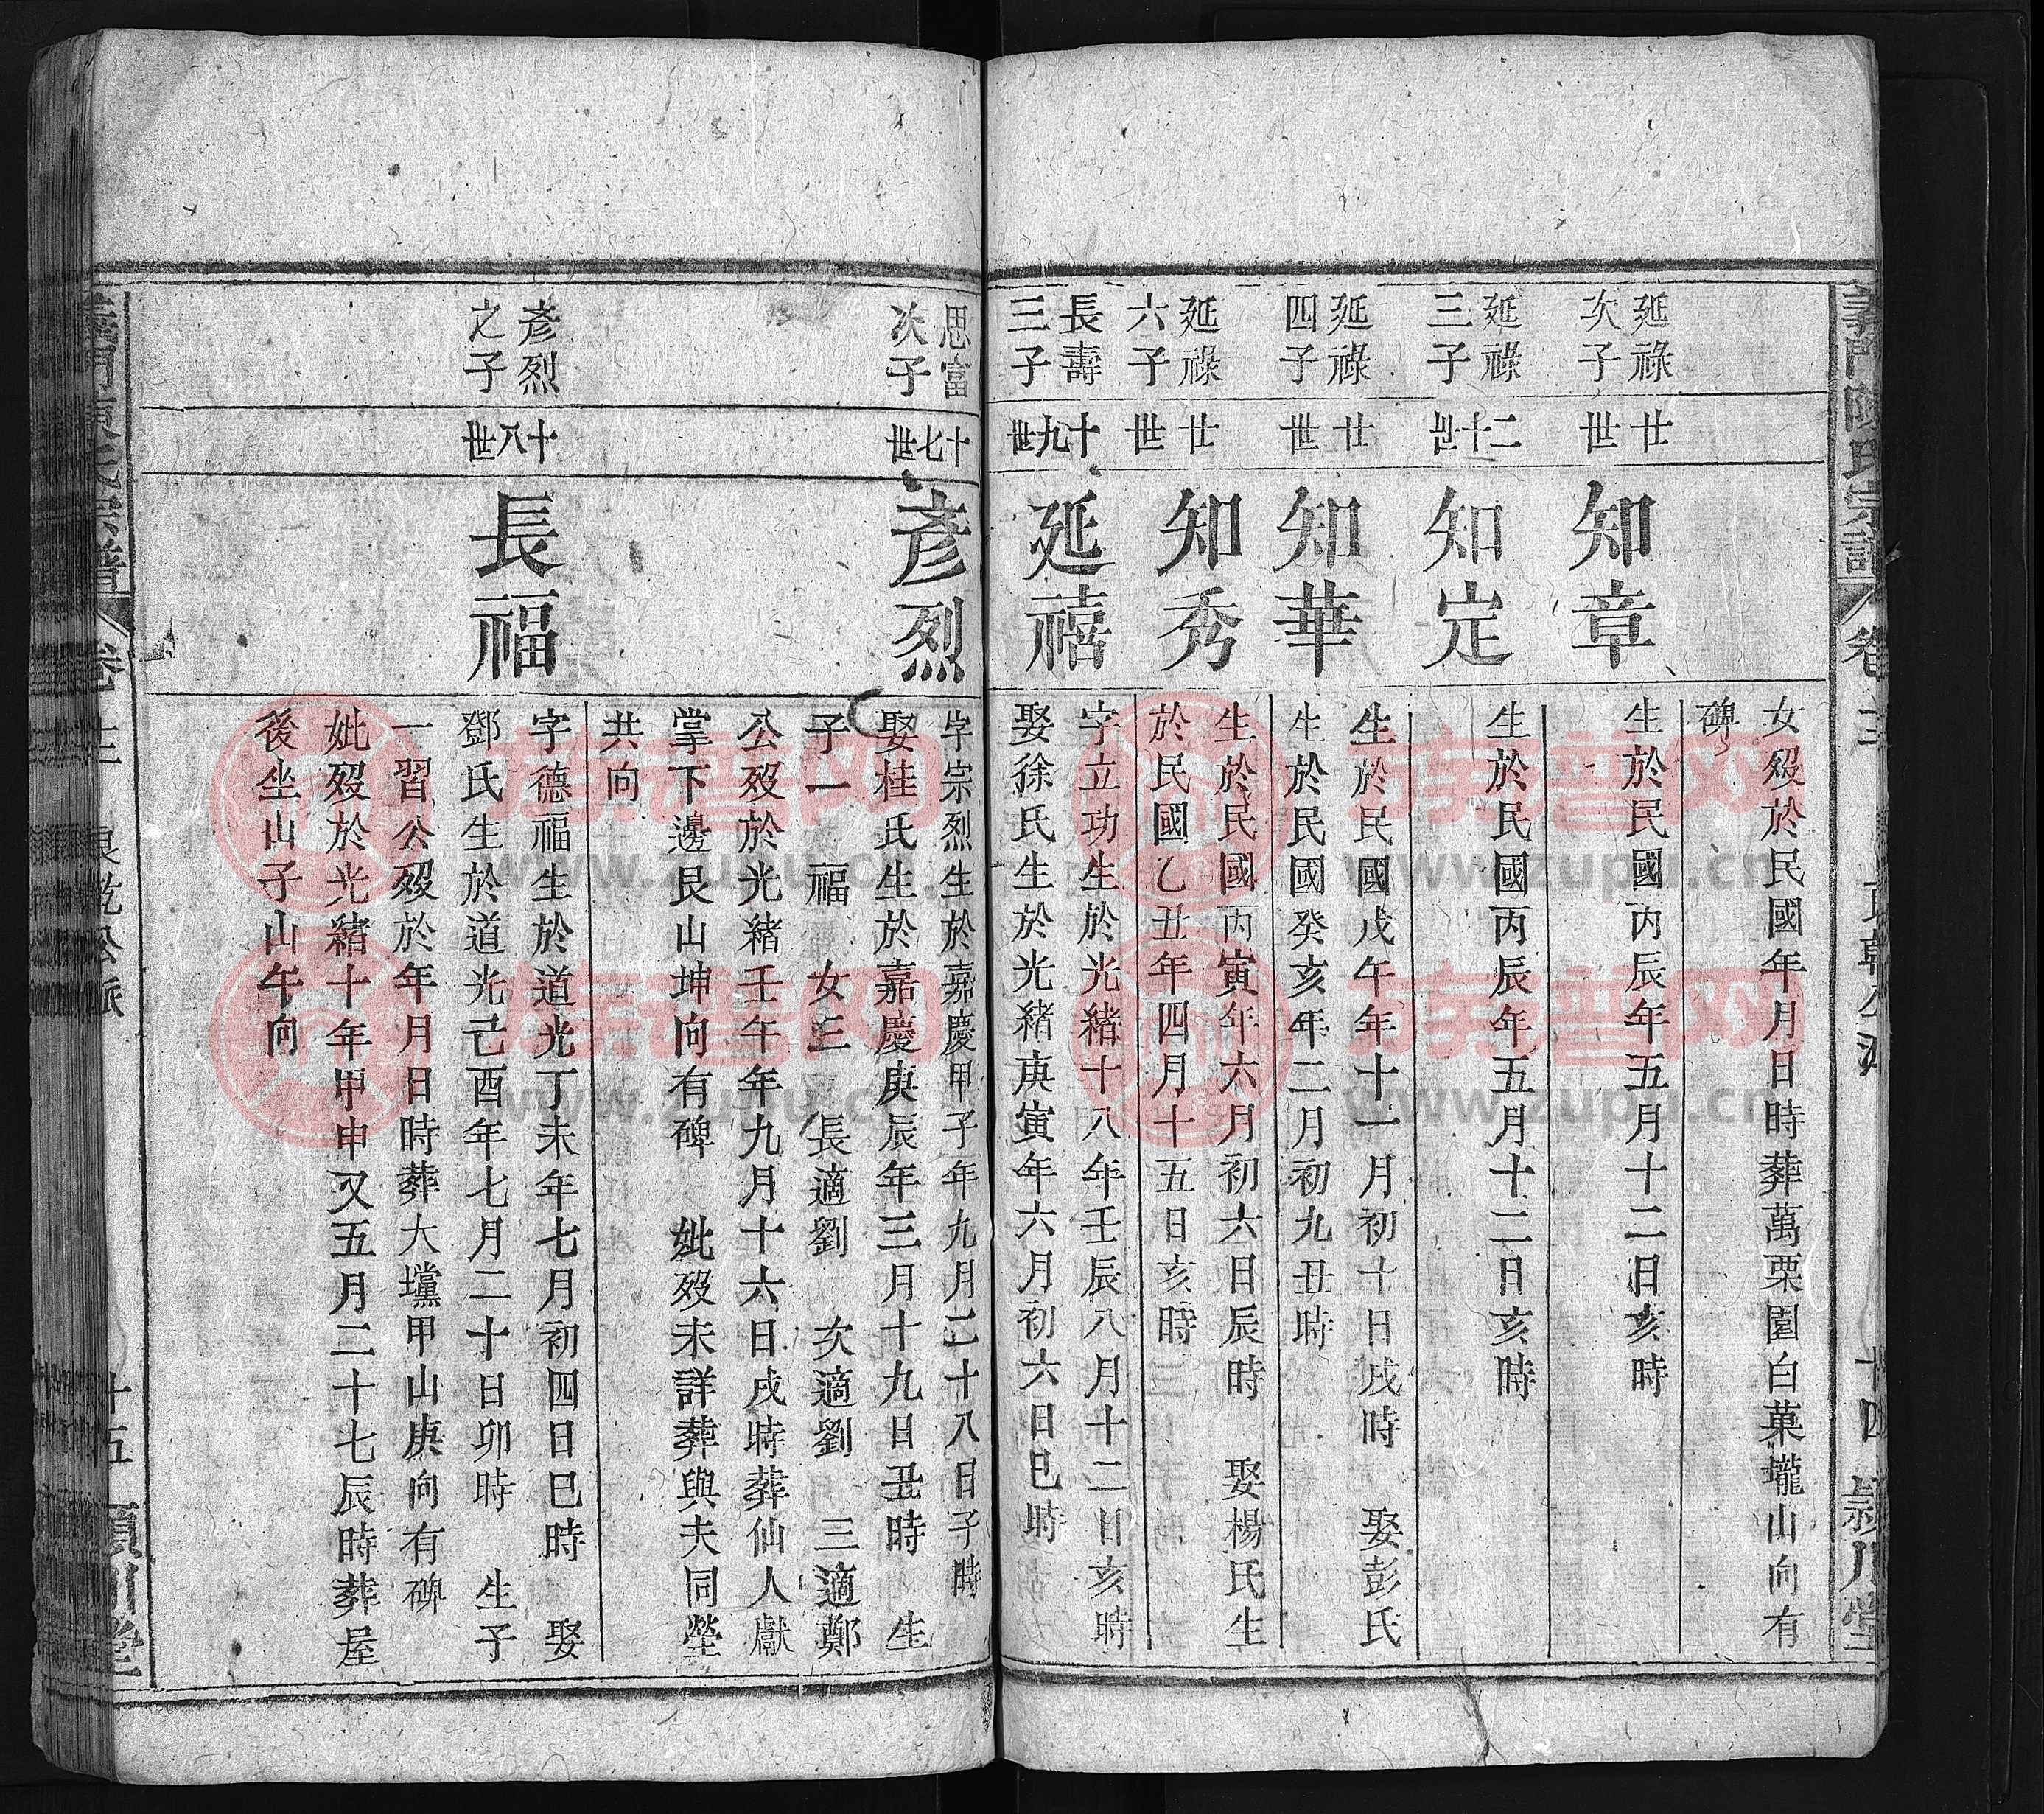 義門陳氏宗譜
卷三
十四
潁川堂
女歿於民國年月日時葬萬栗園白菓壠山向有
碑
延祿
次子
廿世
知章
生於民國丙辰年五月十二日亥時
延祿
三子
二十世
知定
生於民國丙辰年五月十二日亥時
延祿
四子
廿世
知華
生於民國戊午年十一月初十日戌時 娶彭氏
生於民國癸亥年二月初九丑時
延祿
六子
廿世
知秀
生於民國丙寅年六月初六日辰時 娶楊氏生
於民國乙丑年四月十五日亥時
長壽
三子
十九世
延禧
字立功生於光緒十八年壬辰八月十二日亥時
娶徐氏生於光緒庚寅年六月初六日巳時
思富
次子
十七世
彥烈
字宗烈生於嘉慶甲子年九月二十八日子時
娶桂氏生於嘉慶庚辰年三月十九日丑時 生
子一 福 女三 長適劉 次適劉 三適鄭
公歿於光緒壬午年九月十六日戌時葬仙人獻
掌下邊艮山坤向有碑 妣歿未詳葬與夫同塋
共向
彥烈
之子
十八世
長福
字德福生於道光丁未年七月初四日巳時 娶
鄧氏生於道光己酉年七月二十日卯時 生子
一習公歿於年月日時葬大壋甲山庚向有碑
妣歿於光緒十年甲申又五月二十七辰時葬屋
後坐山子山午向
義門陳氏宗譜
卷三
十五
潁川堂
族譜网
www.zupu.cn
族譜网
www.zupu.cn
族譜网
www.zupu.cn
族譜网
www.zupu.cn